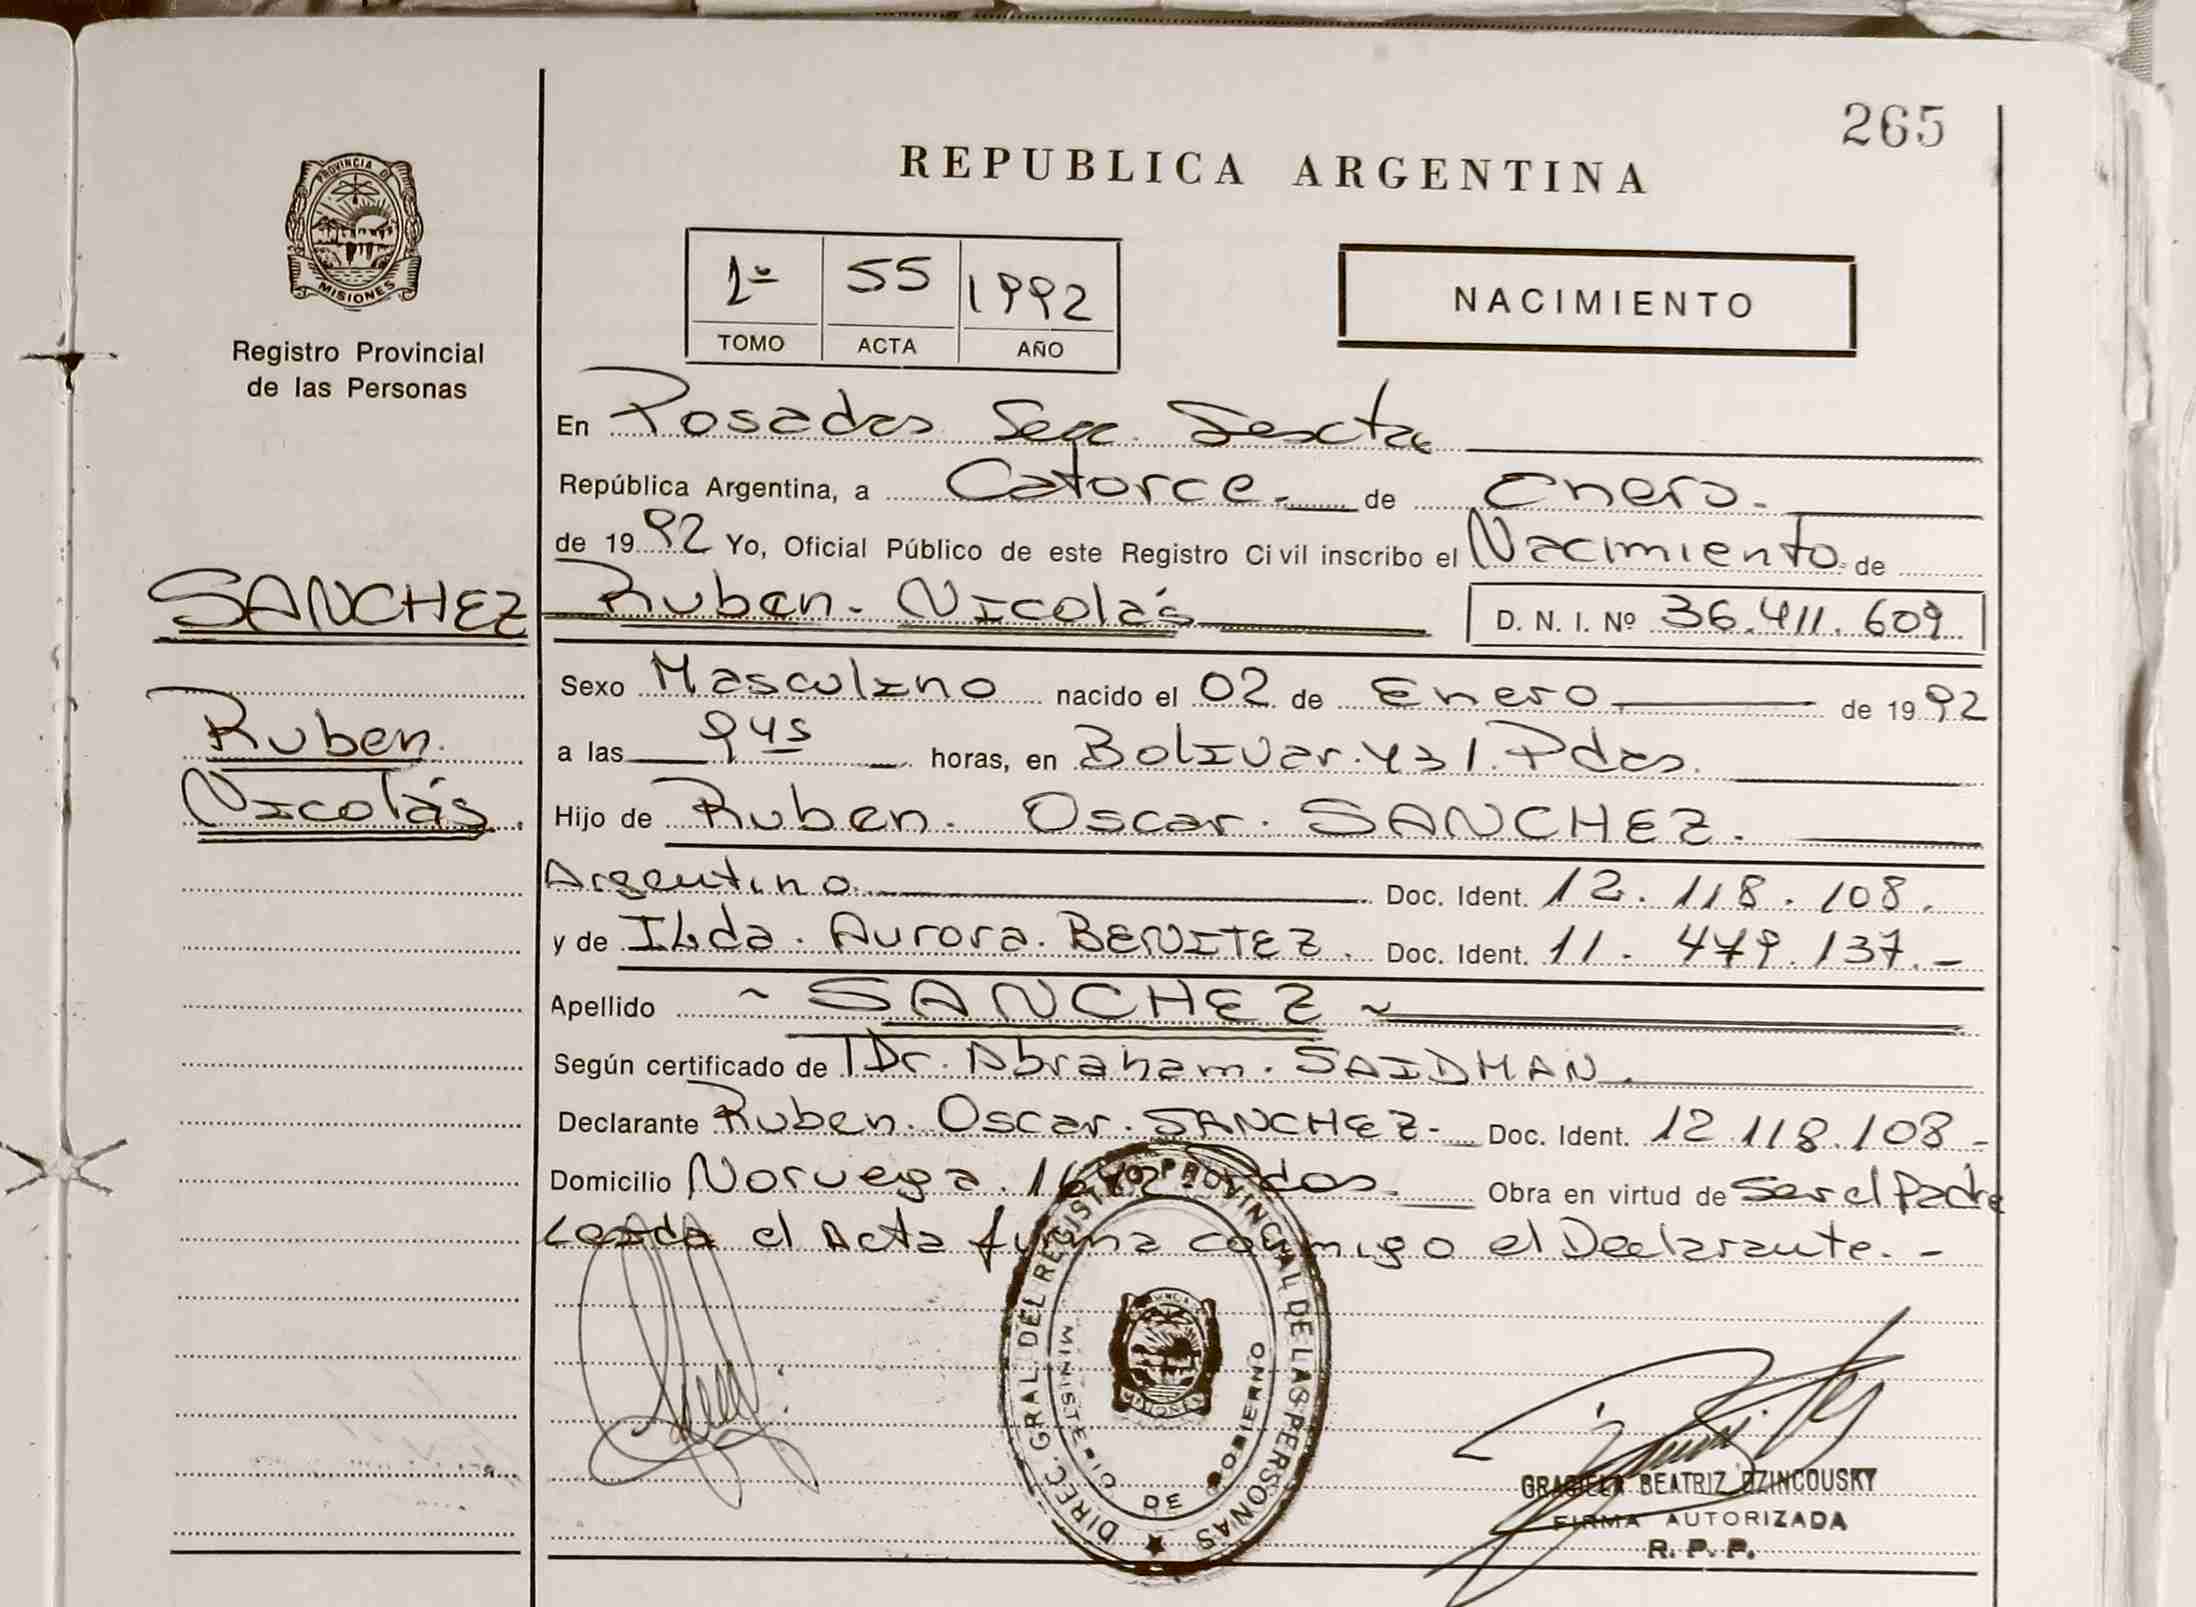 265
PROVINCIA D
MISIONES
Registro Provincial
de las Personas
REPUBLICA ARGENTINA
1º 55 1992
TOMO ACTA AÑO
NACIMIENTO
En Posadas Secc. Sexta
República Argentina, a Catorce. de Enero.
de 1992 Yo, Oficial Público de este Registro Civil inscribo el Nacimiento de
SANCHEZ Ruben Nicolás D. N. I. Nº 36.411.609
Sexo Masculino nacido el 02 de Enero de 1992
Ruben
a las 9 45 horas, en Bolivar. 431. Pdas.
Nicolás.
Hijo de Ruben. Oscar. SANCHEZ.
Argentino Doc. Ident. 12.118.108.
y de Ilda. Aurora. BENITEZ. Doc. Ident. 11.479.137.-
Apellido ~ SANCHEZ ~
Según certificado de Dr. Abraham. SAIDMAN.
Declarante Ruben. Oscar. SANCHEZ- Doc. Ident. 12.118.108-
Domicilio Noruega. Pdas. Obra en virtud de Ser el Padre
Leída el Acta firma conmigo el Declarante.-
DIREC. GRAL. DEL REGISTRO PROVINCIAL DE LAS PERSONAS
MINISTERIO DE GOBIERNO
GRACIELA BEATRIZ DZINCOUSKY
FIRMA AUTORIZADA
R. P. P.